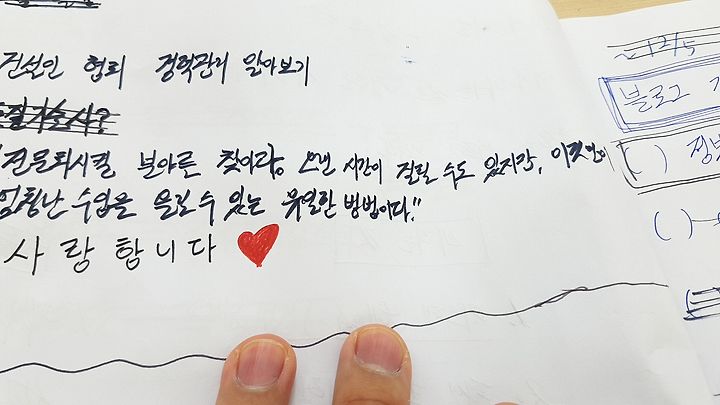 건설인 협회 경력관리 알아보기
"전문화시킬 분야를 찾아라, 오랜 시간이 걸릴 수도 있지만, 이것만이
엄청난 수입을 올릴 수 있는 유일한 방법이다."
사랑합니다
~12/5
블로그
( ) 정보
( )